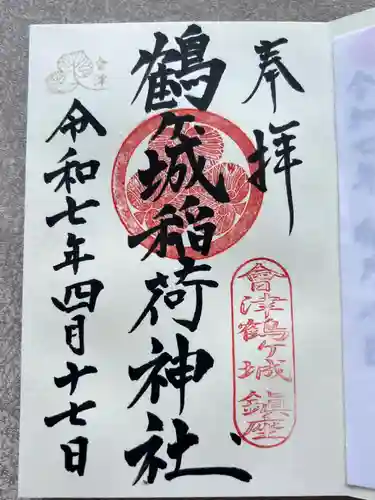 奉拝
會津鶴ヶ城鎮座
鶴ヶ城稲荷神社
令和七年四月十七日
會津